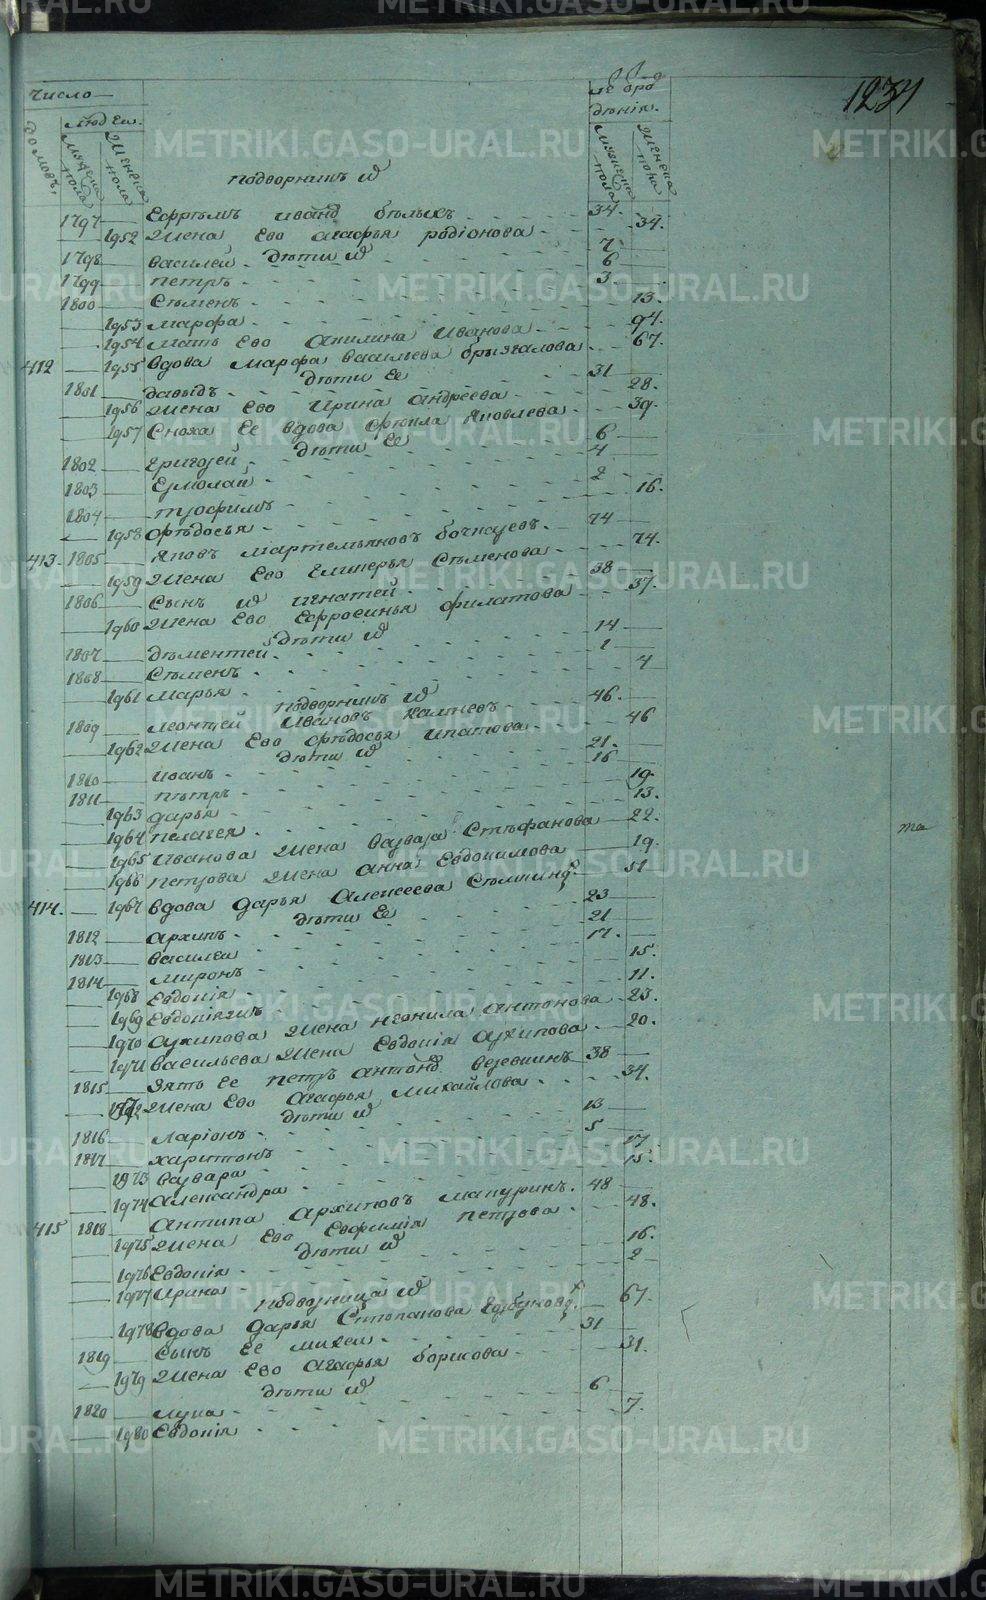 METRIKI.GASO-URAL.RU
1234
Число
людей.
домовъ,
мужеска пола
женска пола
лѣ
мужеска пола
женска пола
подворникъ
1797 Ефремъ Иванов Бѣлыхъ 34.
1952 Жена Ево Агафья Родіонова 34.
дѣти
1798 Василей 7
1799 Петръ 6
1800 Сѣменъ 3
1953 Марфа 13.
1954 Мать Ево Акилина Иванова 94.
412 1955 Вдова Марфа Васильева Брызгалова 67.
дѣти Ее
1801 Давыдъ 31
1956 Жена Ево Ирина Андреева 28.
1957 Сноха Ее Вдова Яковлева 39.
дѣти Ее
1802 Григорей 6
1803 Ермолай 4
1804 Трофимъ 2
1958 Фѣдосья 16.
413. 1805 Яковъ Мартемьяновъ 74
1959 Жена Ево Сѣменова 74.
1806 Сынъ Игнатей 38
1960 Жена Ево Ефросинья Филатова 37.
дѣти
1807 Дѣментей 14
1808 Сѣменъ 1
1961 Марья 4
подворникъ
1809 Леонтей Ивановъ 46
1962 Жена Ево Фѣдосья Ипатова 46
дѣти
1810 Иванъ 21.
1811 Пѣтръ 16
1963 Дарья 19.
1964 Пелагея 13.
1965 Иванова Жена Варвара Стѣфанова 22.
1966 Петрова Жена Анна Евдокимова 19.
414. 1967 Вдова Дарья Алексеева 51
дѣти Ее
1812 Архипъ 23
1813 Василей 21
1814 Миронъ 17.
1968 Евдокія 15.
1969 11.
1970 Архипова Жена Неонила Антонова 23.
1971 Васильева Жена Евдокія Архипова 20.
1815 Зять Ее Петръ Антонов 38
1972 Жена Ево Агафья Михайлова 34.
дѣти
1816 Ларіонъ 13
1817 Харитонъ 5
1973 Варвара 17
1974 Александра 15
415 1818 Антипа Архиповъ Мапуринъ. 48
1975 Жена Ево Евфимія Петрова 48.
дѣти
1976 Евдокія 16.
1977 Ирина 2
подворница
1978 Вдова Дарья Степанова 67.
1819 Сынъ Ее Михей 31
1979 Жена Ево Агафья Борисова 31.
дѣти
1820 Лука 6
1980 Евдокія 7.